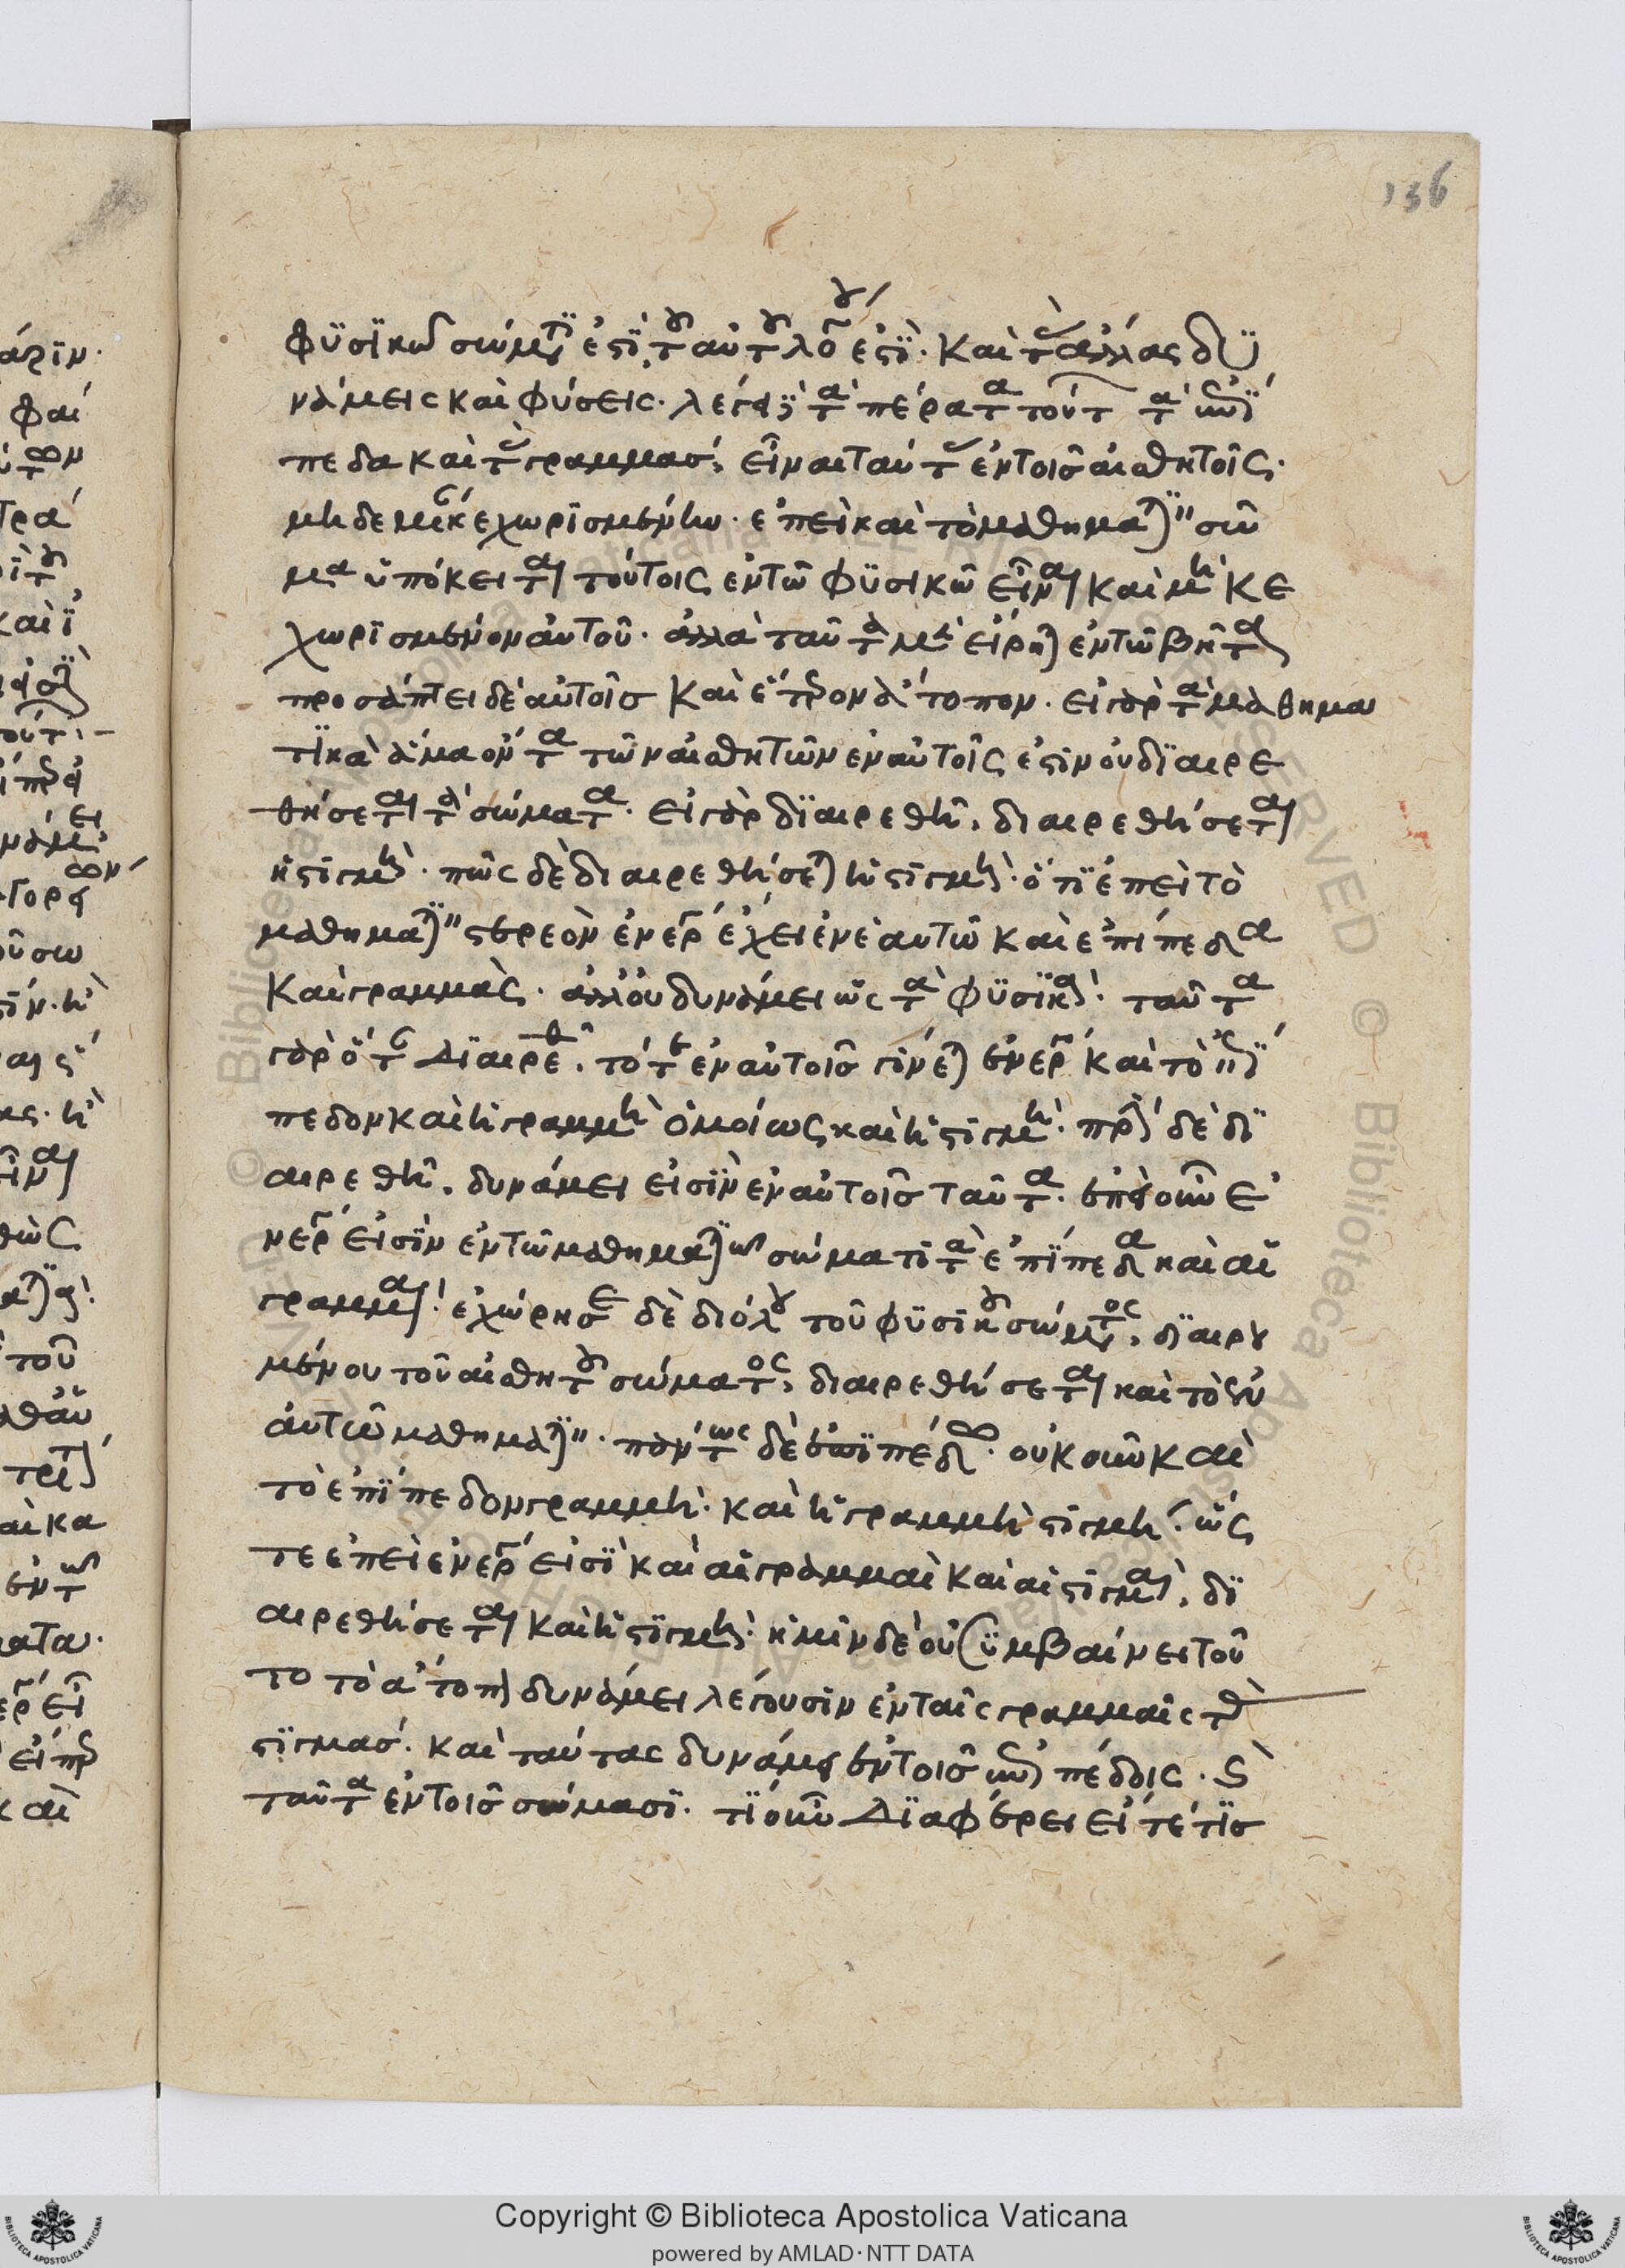 136
φυσικῶ σώματι ἐστὶ, τοῦ αὐτοῦ λόγου ἐστὶ. καὶ τὰς ἄλλας δυ
νάμεις καὶ φύσεις. λέγει τὰ πέρατα τούτων τὰ ἐπί
πεδα καὶ τὰς γραμμάσ, εἶναι ταύτας ἐν τοισ αἰσθητοῖς.
μηδεμίαν κεχωρισμένην. ἐπεὶ καὶ τὸ μαθηματικὸν σῶ
μα ὑπόκειται τούτοις ἐν τῶ φυσικῶ εἶναι καὶ μὴ κε
χωρισμένον αὐτοῦ. ἀλλὰ ταῦτα μὲν εἴρηται ἐν τῶ βῆτα
προσάπτει δὲ αὐτοῖσ καὶ ἕτερον ἄτοπον. εἰ γὰρ τὰ μαθημα
τικὰ ἅμα ὄντα τῶν αἰσθητῶν ἐν αὐτοῖς ἐστιν οὐ διαιρε
θήσεται τὰ σώματα. εἰ γὰρ διαιρεθῆ, διαιρεθήσεται
ἡ στιγμὴ. πῶς δὲ διαιρεθήσεται ἡ στιγμὴ. ὅτι ἐπεὶ τὸ
μαθηματικὸν στερεὸν ἐνεργεία ἔχει ἐν ἑαυτῶ καὶ ἐπίπεδα
καὶ γραμμὰς. ἀλλ' οὐ δυνάμει ὡς τὰ φυσικὰ. ταῦτα
γὰρ ὅτε διαιρεθῆ, τότε ἐν αὐτοισ γίνεται ἐνεργεία καὶ τὸ ἐπί
πεδον καὶ ἡ γραμμὴ ὁμοίως καὶ ἡ στιγμὴ. πρὶν δὲ δι
αιρεθῆ, δυνάμει εἰσὶν ἐν αὐτοισ ταῦτα. ἐπεὶ οὖν ἐ
νεργεία εἰσὶν ἐν τῶ μαθηματικῶ σώματι τὰ ἐπίπεδα καὶ αἱ
γραμμαὶ. ἐχώρησε δὲ διόλου τοῦ φυσικοῦ σώματος, διαιρου
μένου τοῦ αἰσθητοῦ σώματος, διαιρεθήσεται καὶ τὸ ἐν
αὐτῶ μαθηματικὸν. πάντως δὲ ἐπίπεδον. οὐκοῦν καὶ
τὸ ἐπίπεδον γραμμὴ. καὶ ἡ γραμμὴ στιγμή. ὥς
τε ἐπεὶ ἐνεργεία εἰσὶ καὶ αἱ γραμμαὶ καὶ αἱ στιγμαὶ, δι
αιρεθήσεται καὶ ἡ στιγμὴ. ἡμῖν δὲ οὐ συμβαίνει τοῦ
το τὸ ἄτοπον δυνάμει λέγουσιν ἐν ταῖς γραμμαῖς τὰς
στιγμασ. καὶ ταύτας δυνάμει ἐν τοισ ἐπιπέδοις. καὶ
ταῦτα ἐν τοισ σώμασι. τί οὖν διαφέρει εἴτε τισ